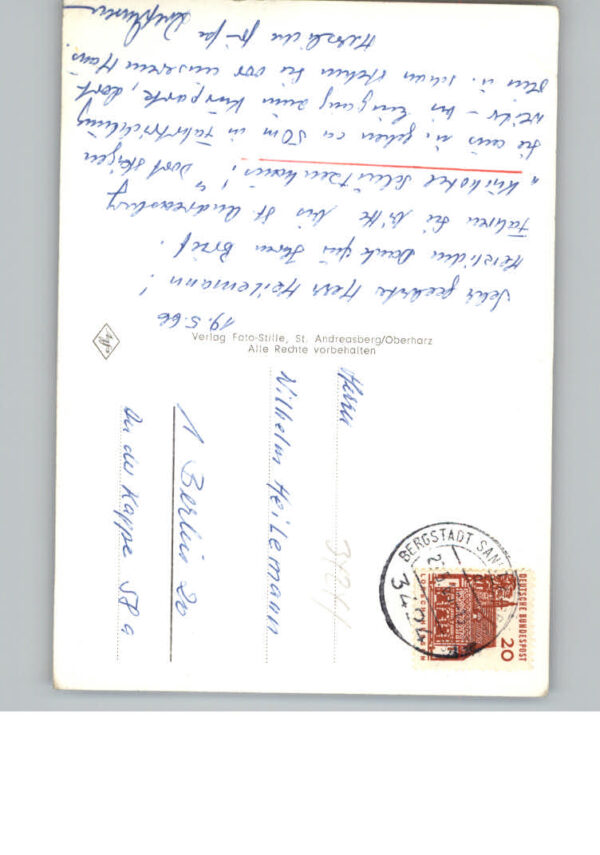 19.5.66
Sehr geehrter Herr Heilemann!
Herzlichen Dank für Ihren Brief.
Fahren Sie bitte bis St. Andreasberg
„Knihotel Schützenhaus", dort steigen
Sie aus u. gehen ca 50 m in Fahrtrichtung
weiter – bis Eingang zum Kurpark, dort
u. schon stehen Sie vor unserem Haus.
Herzlichen
Verlag Foto-Stille, St. Andreasberg/Oberharz
Alle Rechte vorbehalten
Herrn
Wilhelm Heilemann
1 Berlin 20
An der Kappe 57 a
3424
BERGSTADT SAN
3424
DEUTSCHE BUNDESPOST
20